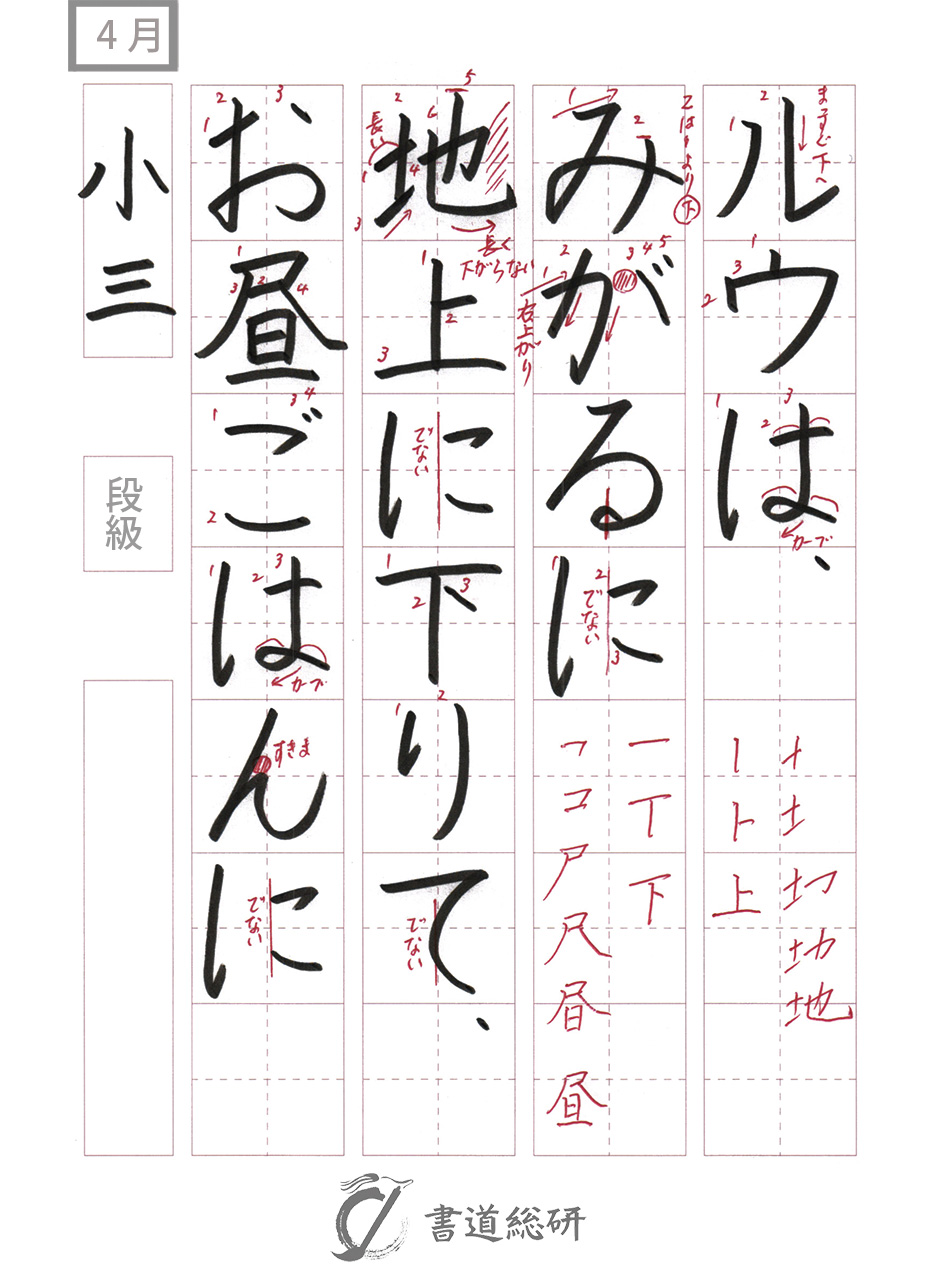 4月
ルウは、
みがるに
地上に下りて、
お昼ごはんに
小三
段級
まっすぐ下へ
カーブ
乙はりより下
右上がり
でない
長い
長く
下がらない
でない
でない
カーブ
すきま
でない
一 十 土 圠 地
丨 ト 上
一 丅 下
尸 尺 昼
書道総研